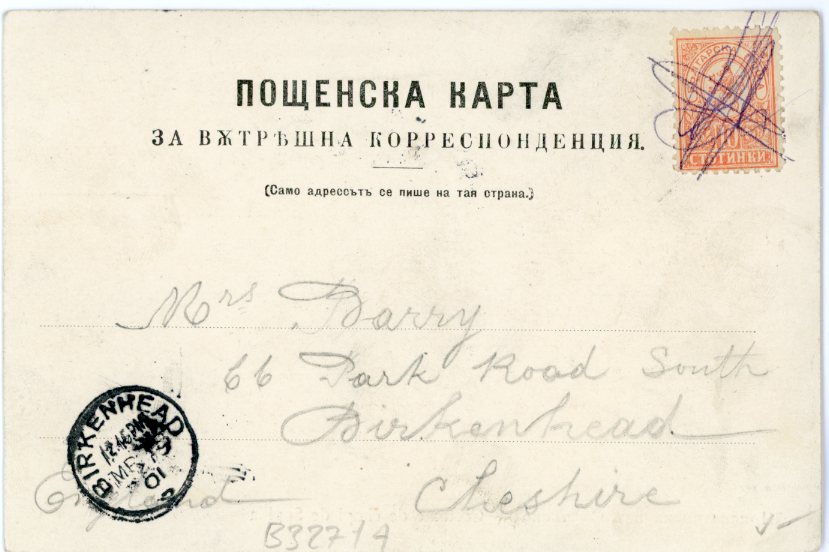 ПОЩЕНСКА КАРТА
ЗА ВѪТРѢШНА КОРРЕСПОНДЕНЦИЯ.
(Само адрессътъ се пише на тая страна.)
10
СТОТИНКИ
Mrs Barry
66 Park Road South
Birkenhead
Cheshire
England
BIRKENHEAD
01
B3271A